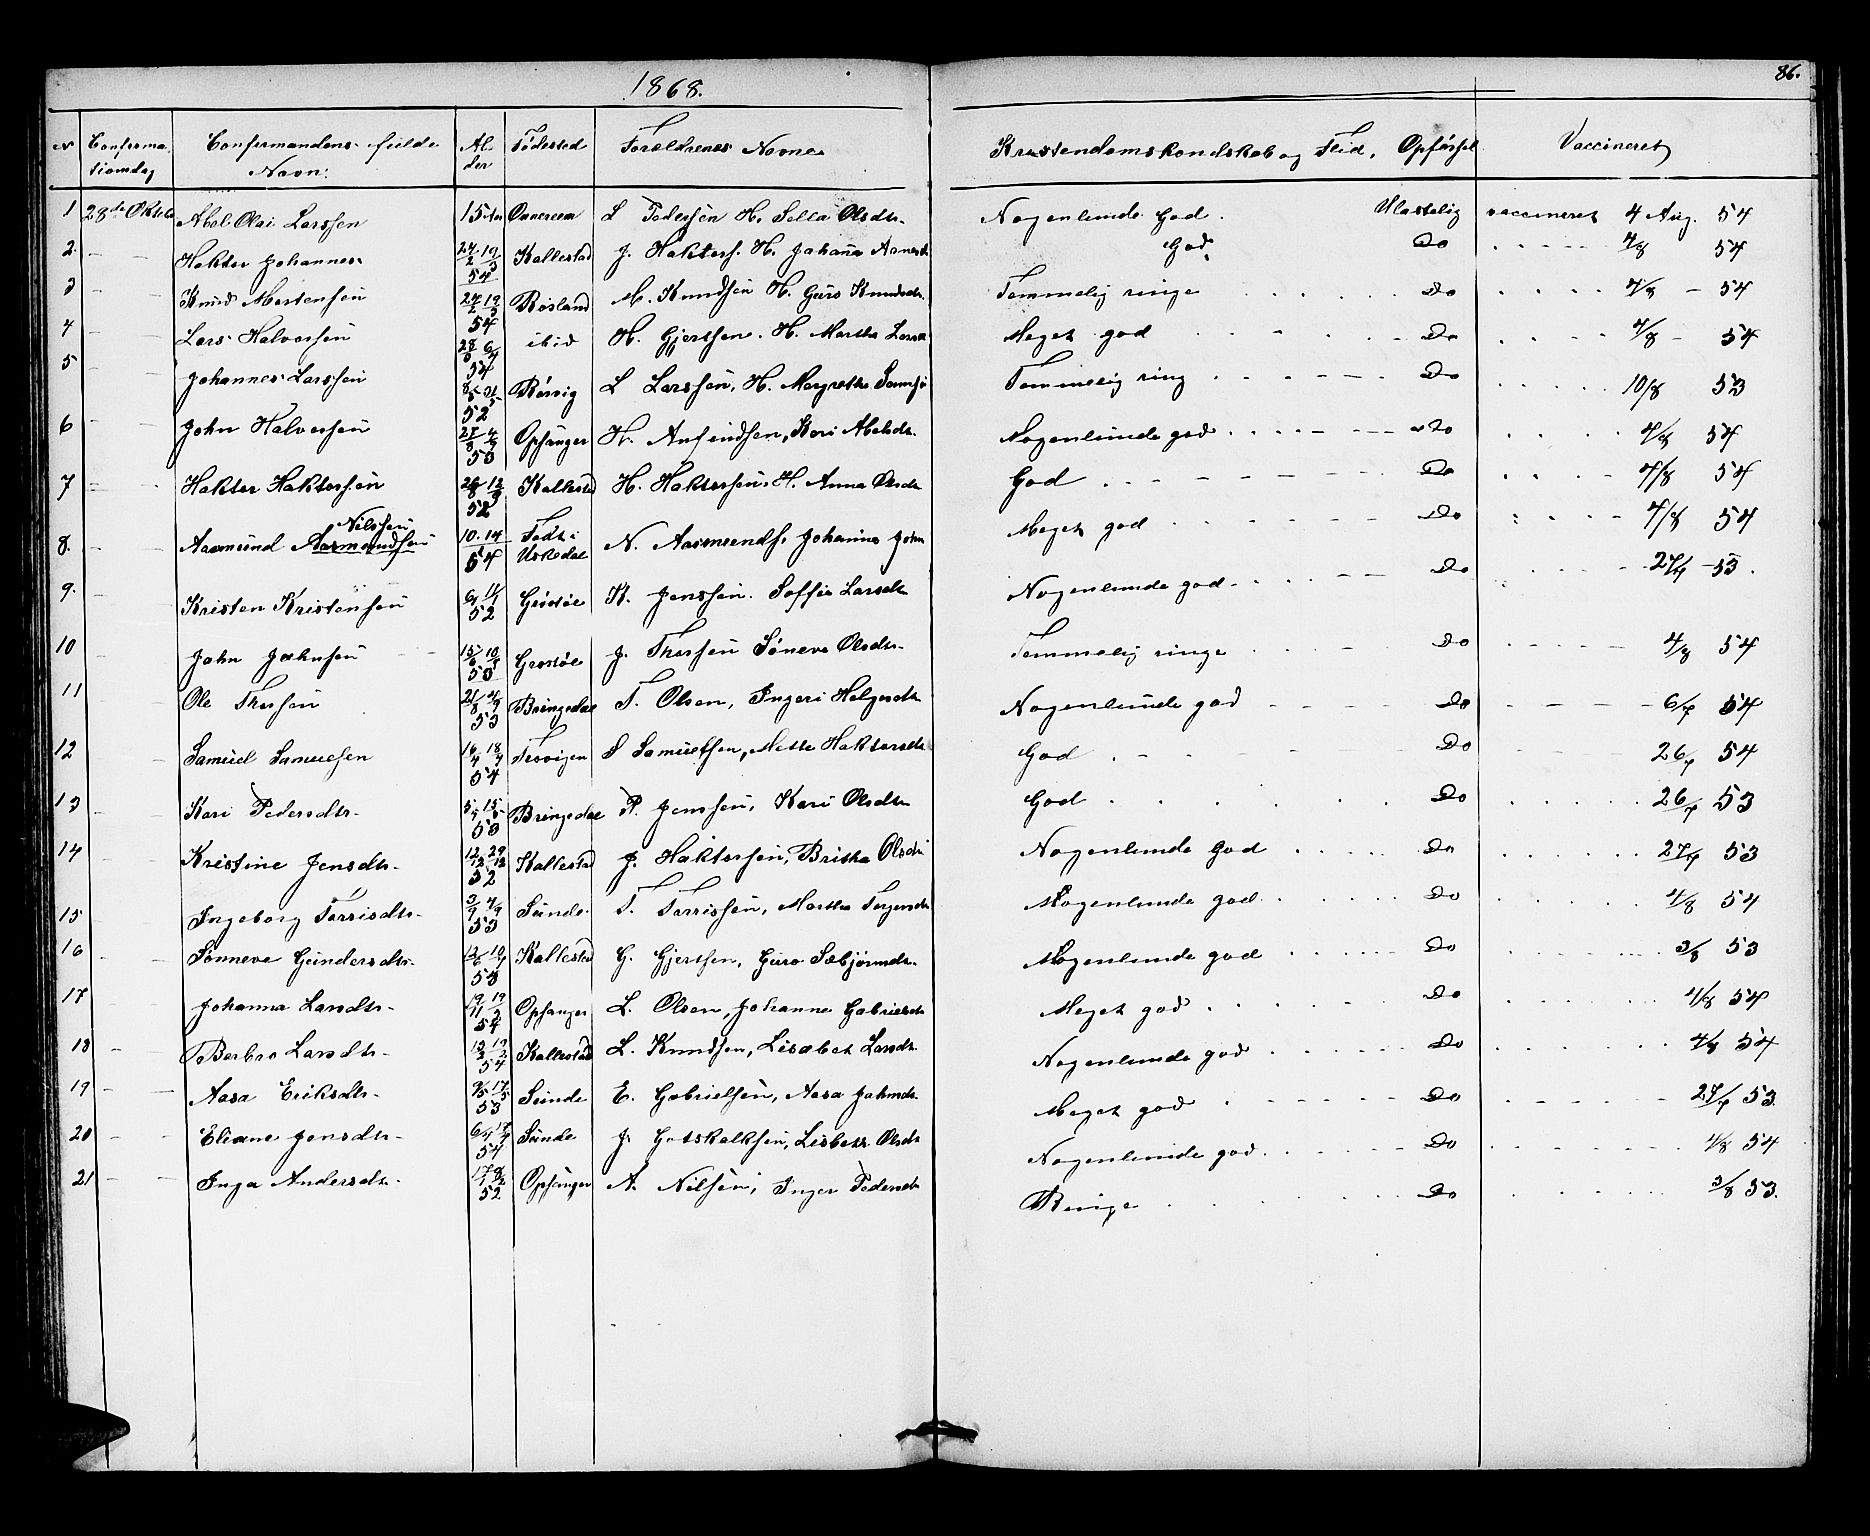 1868.
86.
N Confirmationsdag Confirmandens fulde Navn: Alder Fødested Foreldrenes Navne Kristendomskundskab og Flid. Opførsel Vaccineret
1 28de Oktob Abel Olai Larssen 15 L Pedersen H. Olsdtr. Nogenlunde God. Ulastelig vaccineret 4 Aug. 54
2. Haktor Johannes 54 Kallestad J. Haktors. H. Johanna God. Do 4/8 54
3 Knud Mortensen 54 Røsland M. Knudsen H. Guro Knudsdtr. Temmelig ringe Do 4/8 - 54
4 Lars Halvorsen 54 ibid H. Gjertsen. H. Martha Meget god Do 4/8 - 54
5 Johannes Larssen 52 L Larssen, H. Margrethe Temmelig ring Do 10/8 53
6 John Halvorsen 53 Opsanger H. Anfindsen, Kari Abelsdtr. Nogenlunde god Do 4/8 54
7 Haktor Haktorsen 52 Kallestad H. Haktorsen. H. Anna Olsdtr God Do 4/8 54
8. Aasmund Aasmundsen Nilssen 10. 14 54 Født i Uskedal N. Aasmunds. Johanna John Meget god Do 4/8 54
9. Kristen Kristensen 52 K. Jenssen. Soffie Larsdtr Nogenlunde god Do 27/7 - 53.
10 John Johnsen 53 J. Thorsen Søneva Olsdtr. Temmelig ringe Do 4/8 54
11 Ole Thorsen 53 Bringedal T. Olsen, Ingeri Helgesdtr Nogenlunde god Do 6/7 54
12 Samuel Samuelsen 54 S Samuelsen, Mette Haktorsdtr God Do 26/7 54
13 Kari Pedersdtr. 53 Bringedal P. Jenssen, Kari Olsdtr God Do 26/7 53
14 Kristine Jensdtr. 12/12 29/12 52 Kallestad J. Haktorsen, Britha Olsdtr Nogenlunde God Do 27/7 53
15 Ingeborg Torrisdtr. 53 Sunde T. Torrissen, Martha Nogenlunde god Do 4/8 54
16 Sønneva Gundersdtr. 53 Kallestad G. Gjertsen, Guro Sæbjørnsdtr. Nogenlunde god Do 3/8 53
17 Johanna Larsdtr. 54 Opsanger L. Olsen, Johanne Gabrielsdtr Meget god Do 4/8 54
18 Barbro Larsdtr. 54 Kallestad L. Knudsen, Lisabet Larsdtr. Nogenlunde god Do 4/8 54
19 Aasa Eriksdtr. 53 Sunde E. Gabrielsen, Aasa Johnsdtr Meget god Do 27/7 53.
20 Eliane Jensdtr. 54 Sunde J. Gotskalksen, Lisbeth Olsdtr Nogenlunde god Do 4/8 54
21 Inga Andersdtr. 52 Opsanger A. Nilsen, Inger Pedersdtr Ringe Do 3/8 53.